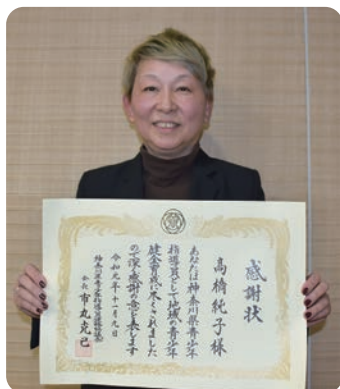 感謝状
高橋純子様
あなたは神奈川県青少年
指導員として地域の青少年
健全育成に尽くされました
ので深く感謝の意を表します
令和元年十一月九日
神奈川県青少年指導員連絡協議会
会長 市丸克己